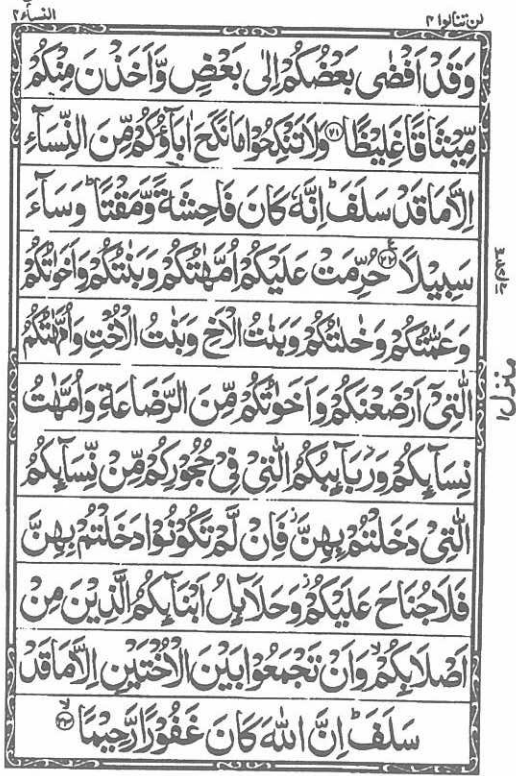 لن تنالوا ٤
النسآء ٤
وَقَدْ اَفْضٰى بَعْضُكُمْ اِلٰى بَعْضٍ وَّاَخَذْنَ مِنْكُمْ
مِّيْثَاقًا غَلِيْظًا ۝ وَلَا تَنْكِحُوْا مَا نَكَحَ اٰبَآؤُكُمْ مِّنَ النِّسَآءِ
اِلَّا مَا قَدْ سَلَفَ ؕ اِنَّهٗ كَانَ فَاحِشَةً وَّمَقْتًا ؕ وَسَآءَ
سَبِيْلًا ۝ حُرِّمَتْ عَلَيْكُمْ اُمَّهٰتُكُمْ وَبَنٰتُكُمْ وَاَخَوٰتُكُمْ
وَعَمّٰتُكُمْ وَخٰلٰتُكُمْ وَبَنٰتُ الْاَخِ وَبَنٰتُ الْاُخْتِ وَاُمَّهٰتُكُمُ
الّٰتِيْۤ اَرْضَعْنَكُمْ وَاَخَوٰتُكُمْ مِّنَ الرَّضَاعَةِ وَاُمَّهٰتُ
نِسَآىِٕكُمْ وَرَبَآىِٕبُكُمُ الّٰتِيْ فِيْ حُجُوْرِكُمْ مِّنْ نِّسَآىِٕكُمُ
الّٰتِيْ دَخَلْتُمْ بِهِنَّ ؗ فَاِنْ لَّمْ تَكُوْنُوْا دَخَلْتُمْ بِهِنَّ
فَلَا جُنَاحَ عَلَيْكُمْ ؗ وَحَلَآىِٕلُ اَبْنَآىِٕكُمُ الَّذِيْنَ مِنْ
اَصْلَابِكُمْ ۙ وَاَنْ تَجْمَعُوْا بَيْنَ الْاُخْتَيْنِ اِلَّا مَا قَدْ
سَلَفَ ؕ اِنَّ اللّٰهَ كَانَ غَفُوْرًا رَّحِيْمًا ۝
منزل ١